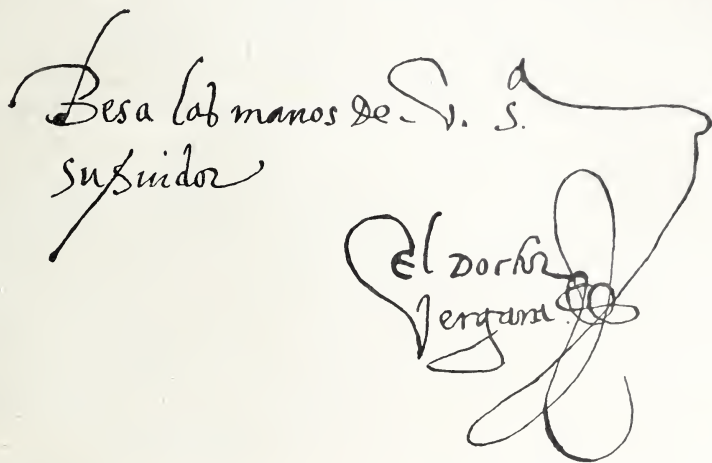 Besa las manos de V. S.ª
su seruidor
el Doctor
Vergara.